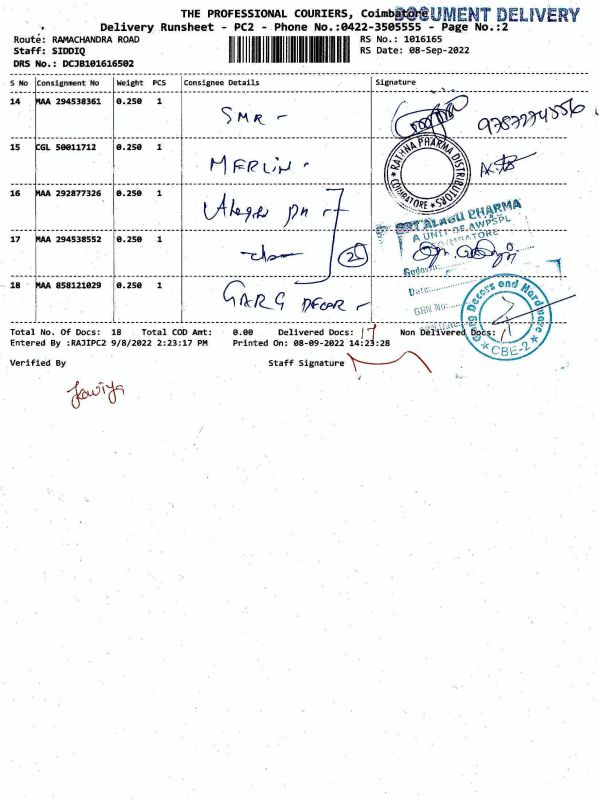 THE PROFESSIONAL COURIERS, Coimbatore
DOCUMENT DELIVERY
Delivery Runsheet - PC2 - Phone No.:0422-3505555 - Page No.:2
Route: RAMACHANDRA ROAD RS No.: 1016165
Staff: SIDDIQ RS Date: 08-Sep-2022
DRS No.: DCJB101616502
S No Consignment No Weight PCS Consignee Details Signature
14 MAA 294538361 0.250 1 SMR -
15 CGL 50011712 0.250 1 MERLIN -
RATHNA PHARMA DISTRIBUTORS
COIMBATORE
16 MAA 292877326 0.250 1
SRI ALAGU PHARMA
A UNIT OF AWPSPL
COIMBATORE
17 MAA 294538552 0.250 1
Godown
Date:
GRN No:
18 MAA 858121029 0.250 1 GARG DECOR -
Garg Decors and Hardware
CBE-2
Total No. Of Docs: 18 Total COD Amt: 0.00 Delivered Docs: 17 Non Delivered Docs: 1
Entered By :RAJIPC2 9/8/2022 2:23:17 PM Printed On: 08-09-2022 14:23:28
Verified By Staff Signature